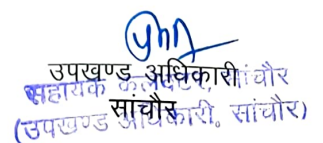 उपखण्ड अधिकारी
सहायक कलेक्टर, सांचौर
सांचौर
(उपखण्ड अधिकारी, सांचौर)